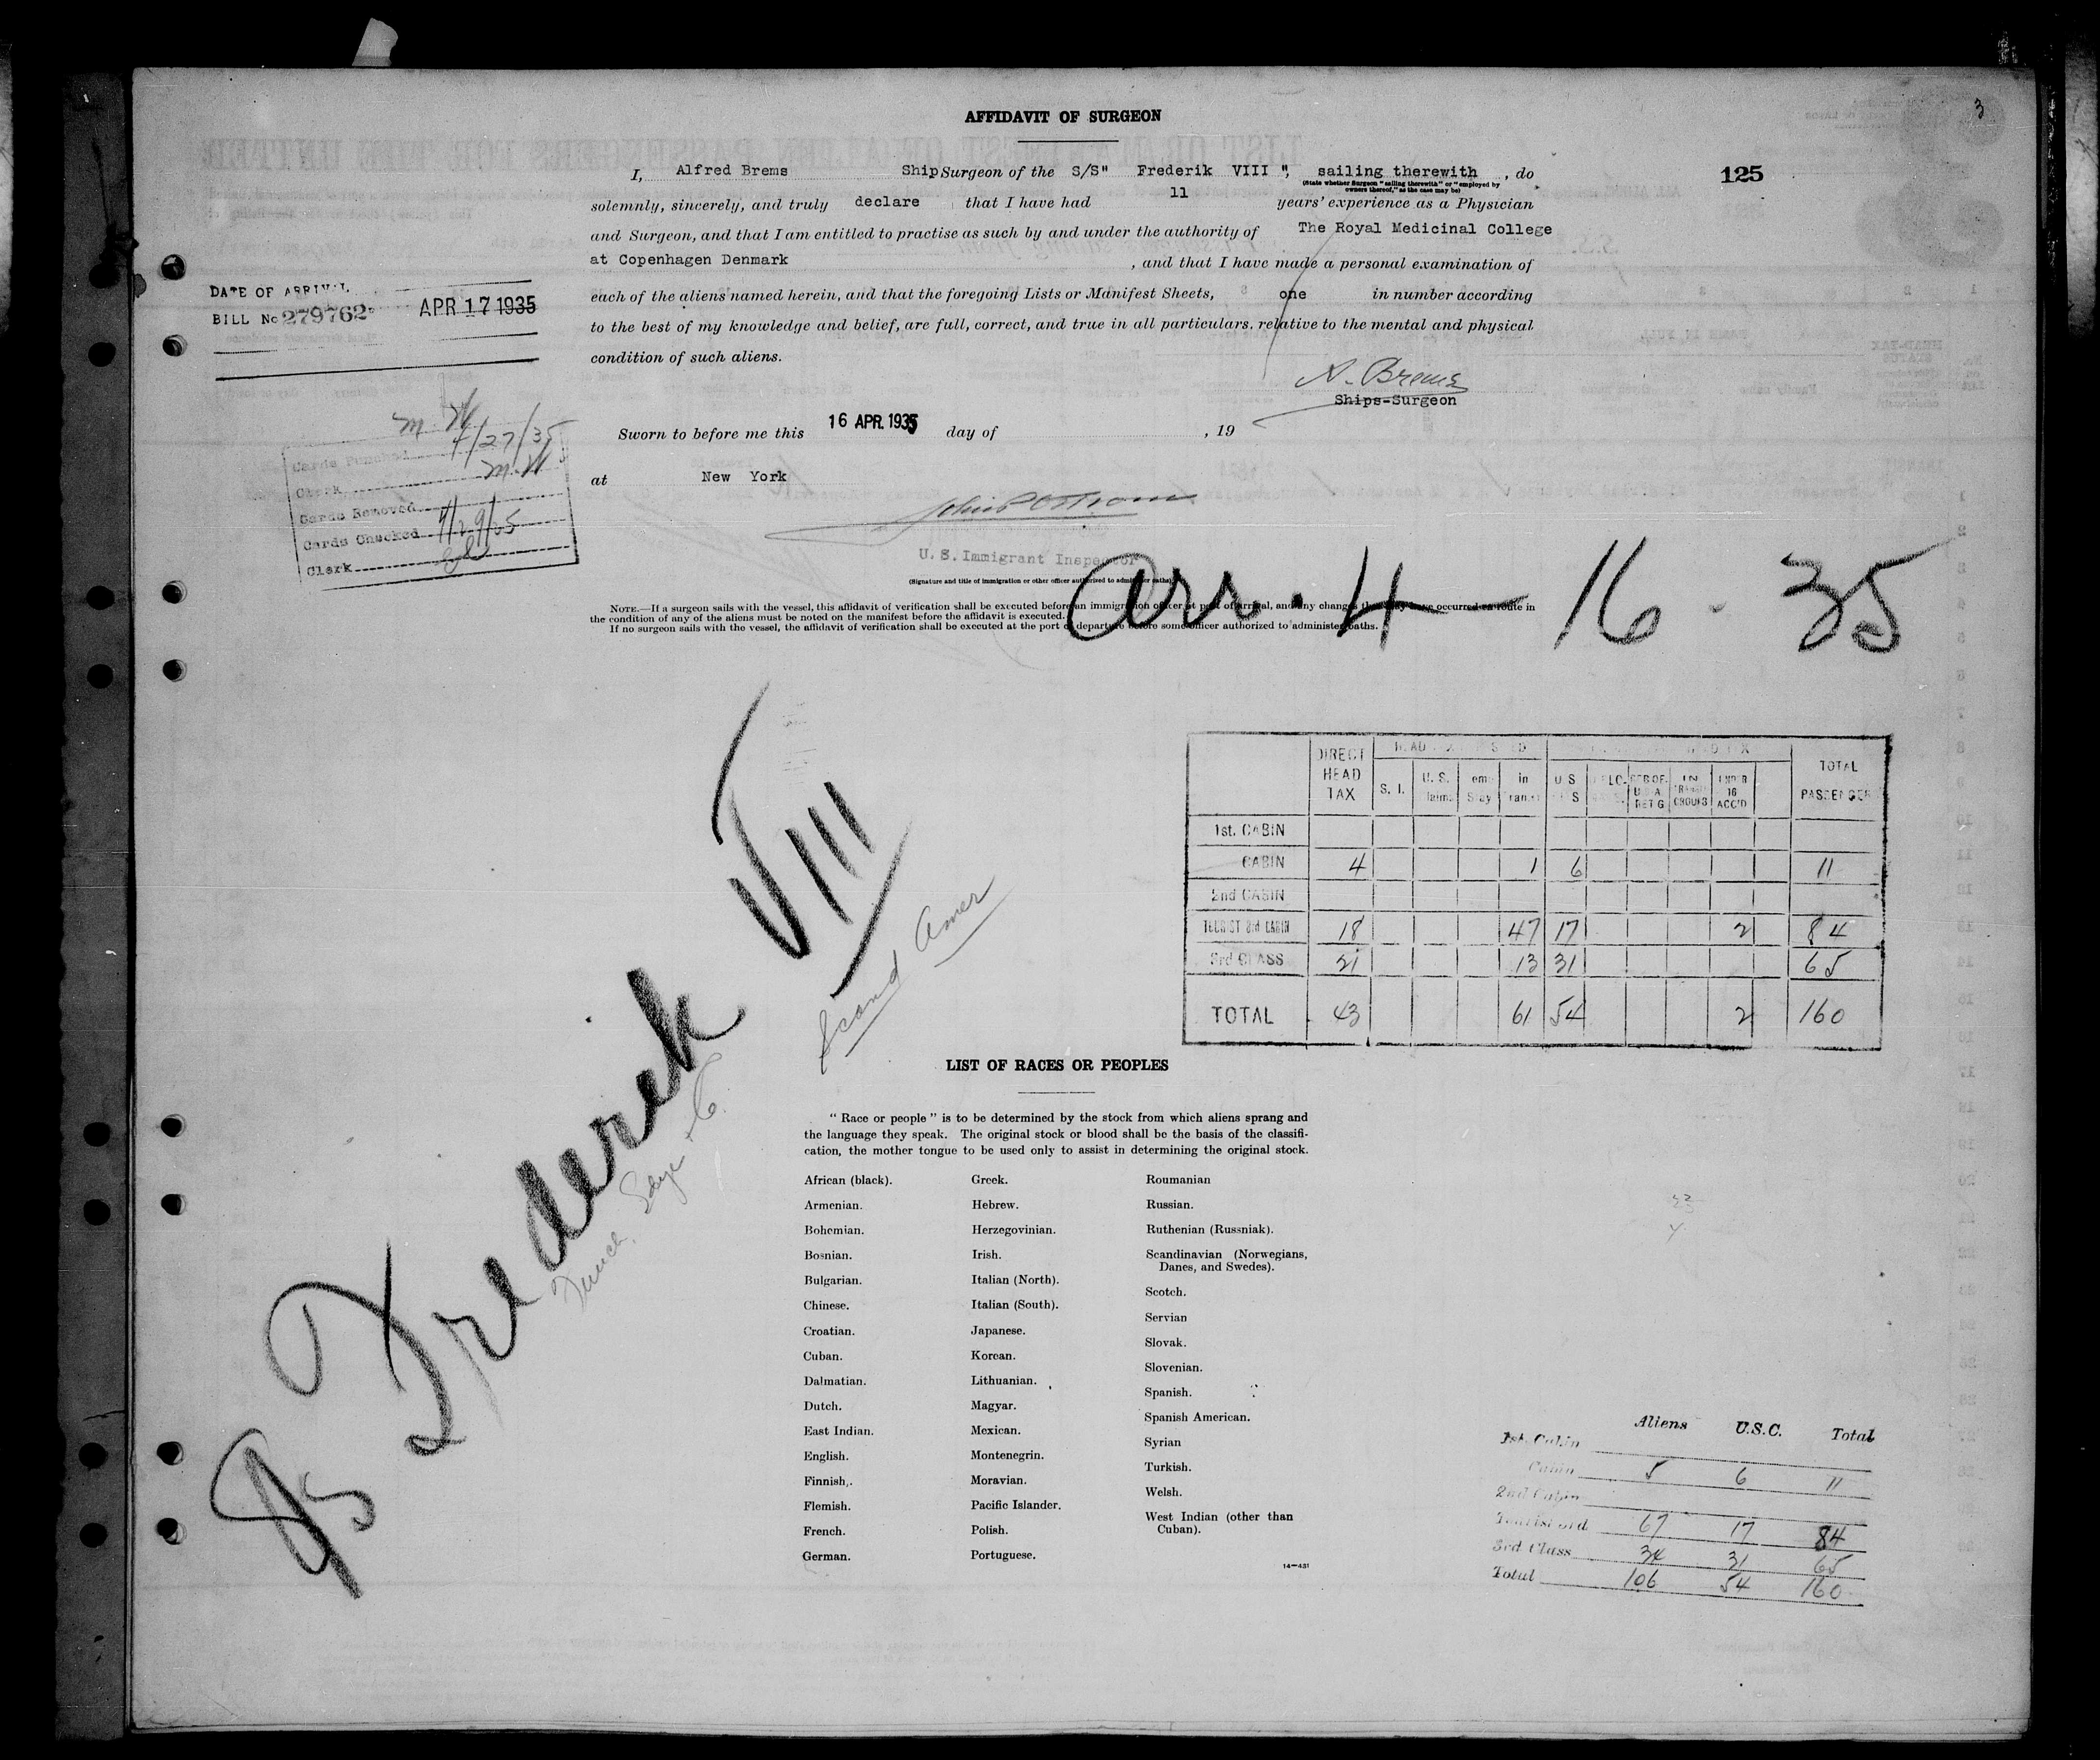 3
AFFIDAVIT OF SURGEON
125
I, Alfred Brems Ship Surgeon of the S/S" Frederik VIII ", sailing therewith , do
(State whether Surgeon "sailing therewith" or "employed by
owners thereof," as the case may be)
solemnly, sincerely, and truly declare that I have had 11 years' experience as a Physician
and Surgeon, and that I am entitled to practise as such by and under the authority of The Royal Medicinal College
at Copenhagen Denmark , and that I have made a personal examination of
each of the aliens named herein, and that the foregoing Lists or Manifest Sheets, one in number according
to the best of my knowledge and belief, are full, correct, and true in all particulars. relative to the mental and physical
condition of such aliens.
A. Brems
Ships-Surgeon
DATE OF ARRIVAL
BILL No 279762 APR 17 1935
Sworn to before me this 16 APR. 1935 day of , 19
at New York
U. S. Immigrant Inspector
(Signature and title of immigration or other officer authorized to administer oaths)
M. W
Cards Punched 4/27/35
Clerk M. W
Cards Removed
Cards Checked 4/29/35
Clerk
NOTE.—If a surgeon sails with the vessel, this affidavit of verification shall be executed before an immigration officer at port of arrival, and any changes that may have occurred en route in
the condition of any of the aliens must be noted on the manifest before the affidavit is executed.
If no surgeon sails with the vessel, the affidavit of verification shall be executed at the port of departure before some officer authorized to administer oaths.
Arr. 4 - 16 - 35
DIRECT HEAD TAX S. I. U. S. in Trans U S IN TRANSIT GROUPS UNDER 16 ACC'D TOTAL PASSENGER
1st. CABIN
CABIN 4 1 6 11
2nd CABIN
TOURIST 3rd CABIN 18 47 17 2 84
3rd CLASS 21 13 31 65
TOTAL 43 61 54 2 160
Frederik VIII
Scand Amer
LIST OF RACES OR PEOPLES
" Race or people " is to be determined by the stock from which aliens sprang and
the language they speak. The original stock or blood shall be the basis of the classifi-
cation, the mother tongue to be used only to assist in determining the original stock.
African (black).
Armenian.
Bohemian.
Bosnian.
Bulgarian.
Chinese.
Croatian.
Cuban.
Dalmatian.
Dutch.
East Indian.
English.
Finnish.
Flemish.
French.
German.
Greek.
Hebrew.
Herzegovinian.
Irish.
Italian (North).
Italian (South).
Japanese.
Korean.
Lithuanian.
Magyar.
Mexican.
Montenegrin.
Moravian.
Pacific Islander.
Polish.
Portuguese.
Roumanian
Russian.
Ruthenian (Russniak).
Scandinavian (Norwegians,
Danes, and Swedes).
Scotch.
Servian
Slovak.
Slovenian.
Spanish.
Spanish American.
Syrian
Turkish.
Welsh.
West Indian (other than
Cuban).
14—431
Aliens U.S.C. Total
1st. Cabin
Cabin 5 6 11
2nd Cabin
Tourist 3rd 67 17 84
3rd Class 34 31 65
Total 106 54 160